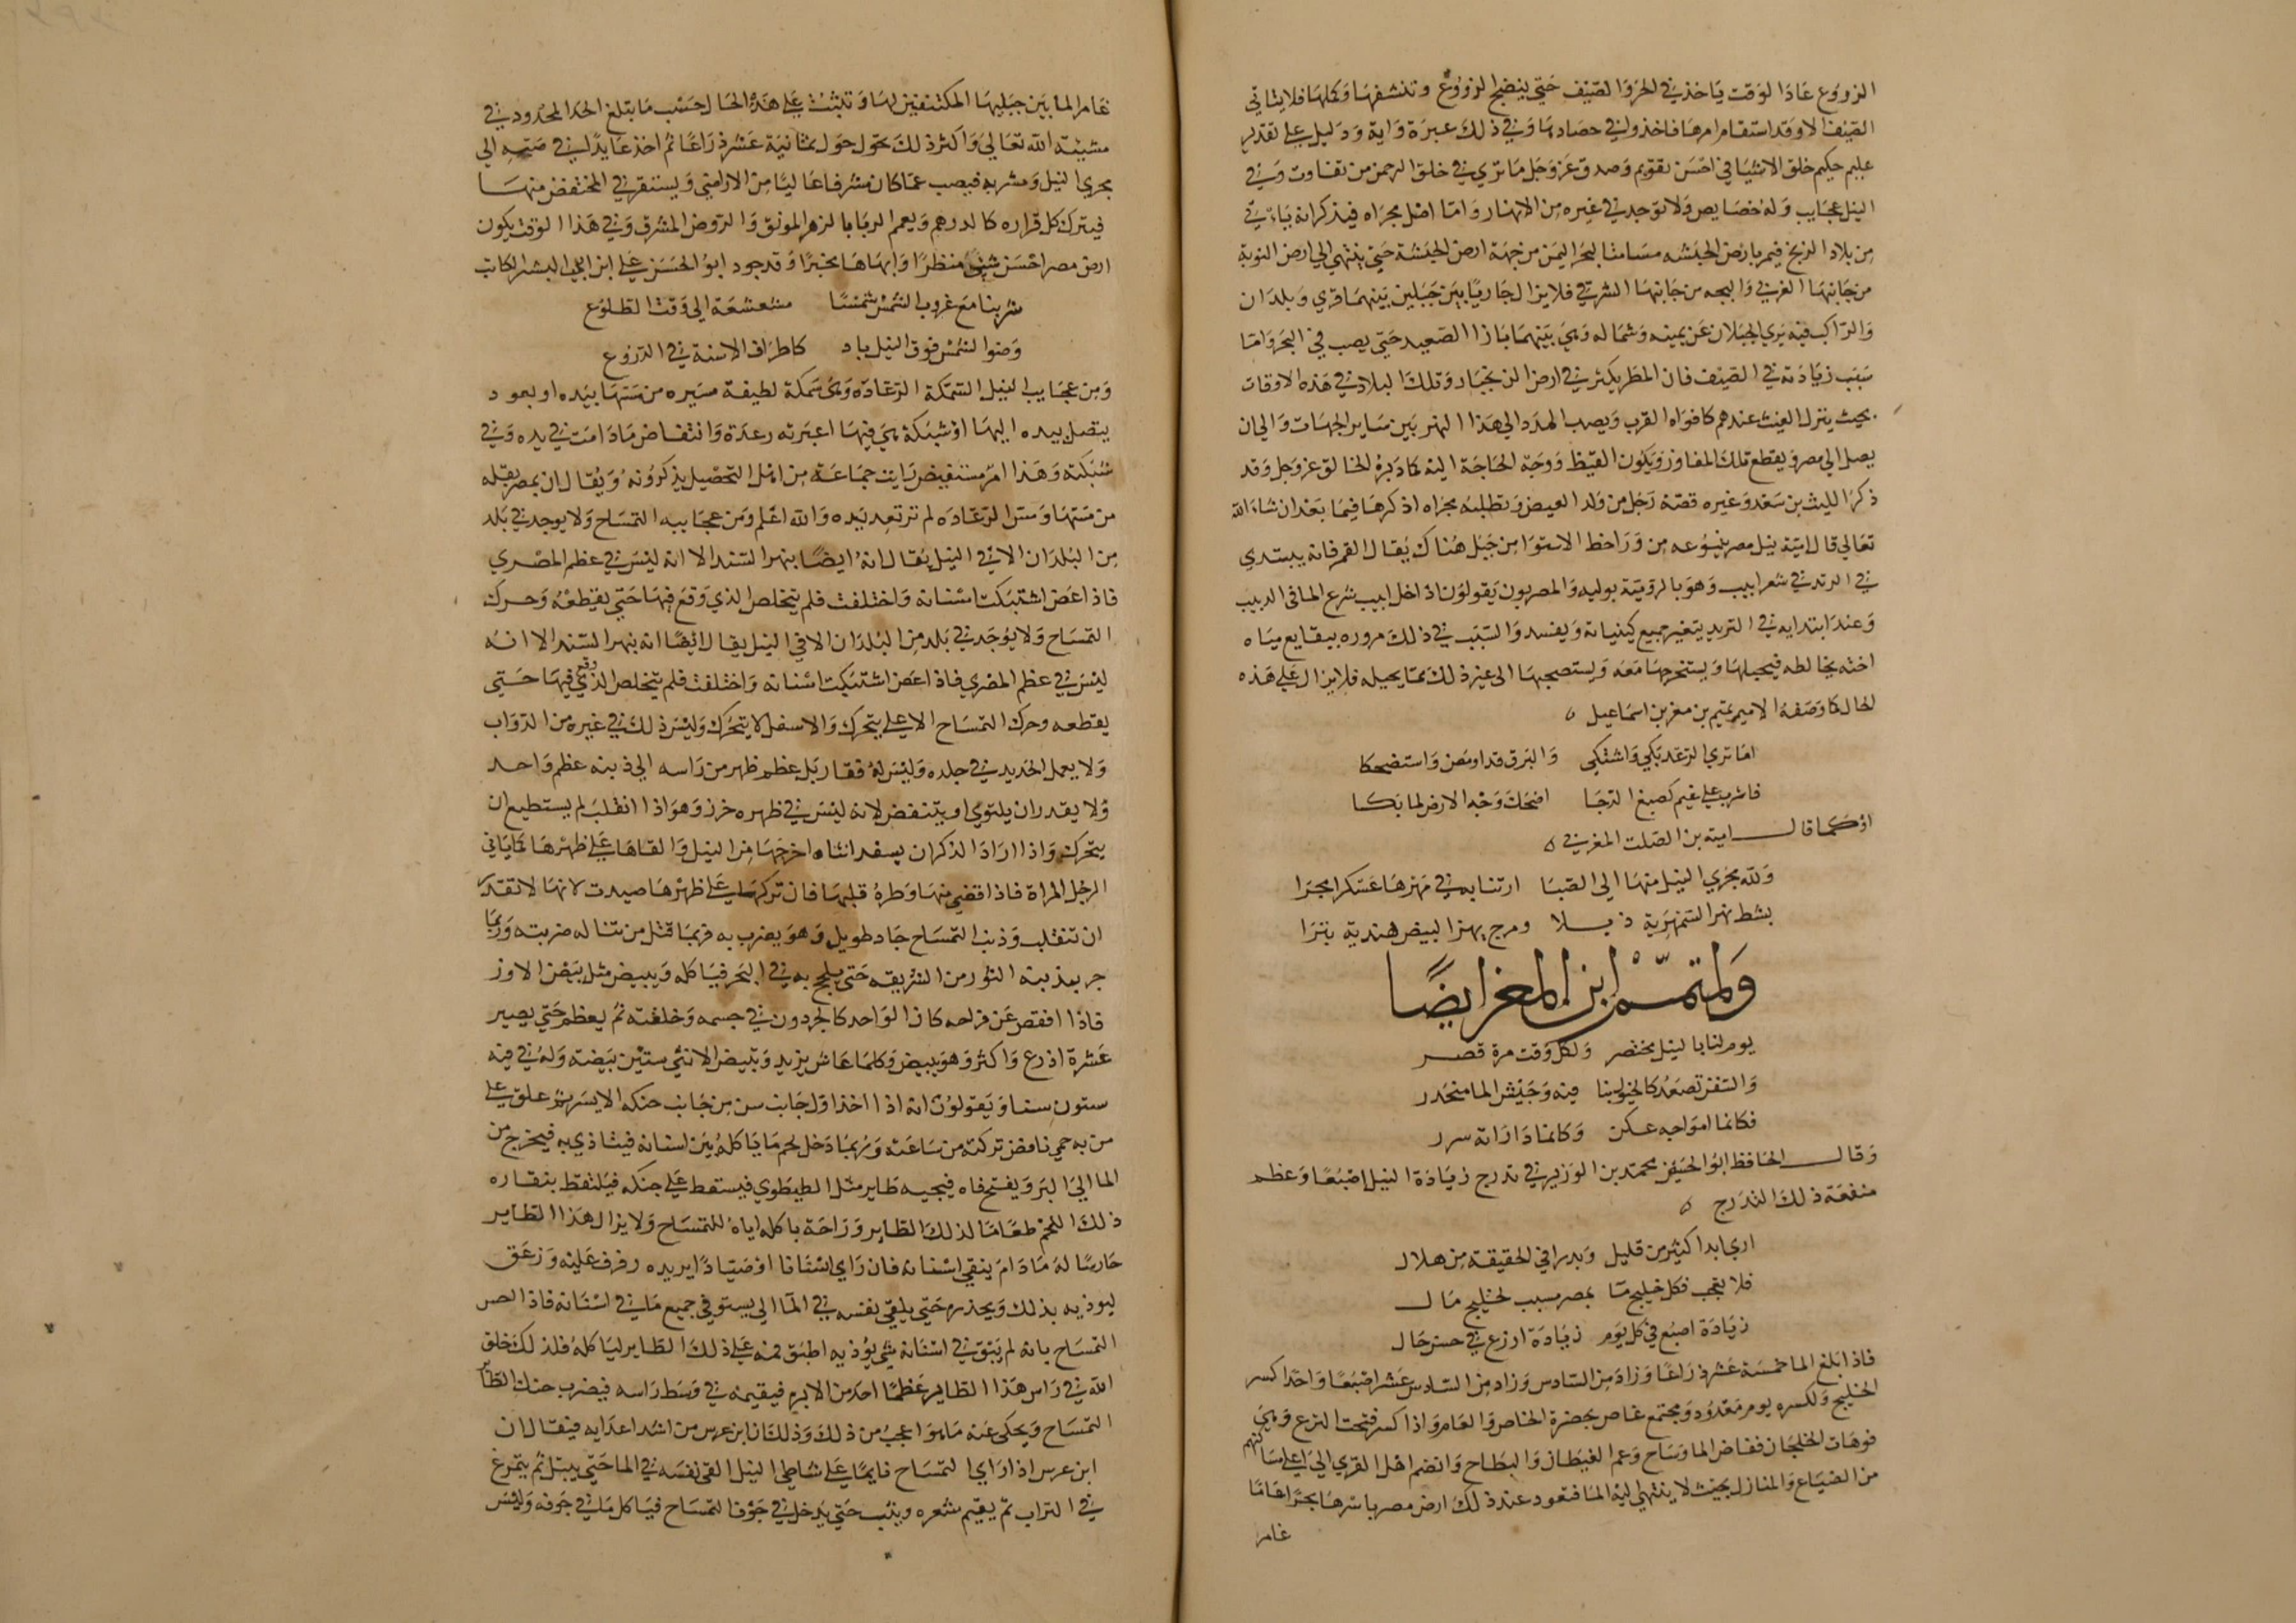 الزروع عاد الوقت ياخذ في الحر والصيف حتي ينضج الزروع وتنشفها وتكملها فلا ياتي
الصيف الا وقد استقام امرها فاخذوا في حصادها وفي ذلك عبرة واية ودليل علي تقدير
عليم حكيم خلق الاشيا في احسن تقويم وصدق عز وجل ما تري في خلق الرحمن من تفاوت وفي
النيل عجايب وله خصايص ولا توجد في غيره من الانهار واما اصل مجراه فيذكر انه ياتي
من بلاد الزنج فيمر بارض الحبشه مسامتا لبحر اليمن من جهة ارض الحبشة حتي ينتهي الي ارض النوبة
من جانبها الغربي والبجه من جانبها الشرقي فلا يزال جاريا بين جبلين بينهما قري وبلدان
والراكب فيه يري الجبلان عن يمينه وشماله وهي بينهما بازا الصعيد حتي يصب في البحر واما
سبب زيادته في الصيف فان المطر يكثر في ارض الزنجبار وتلك البلاد في هذه الاوقات
بحيث ينزل الغيث عندهم كافواه القرب ويصب المدد الي هذا النهر بين ساير الجهات والي ان
يصل الي مصر ويقطع تلك المفاوز ويكون القيظ ووجه الحاجة اليه كما دبره الخالق عز وجل وقد
ذكر الليث بن سعد وغيره قصة رجل من ولد العيص وتطلبه مجراه اذكرها فيما بعد ان شاء الله
تعالي قال امية نيل مصر ينبوعه من ورا خط الاستوا من جبل هناك يقال القمر فانه يبتدي
في الزيد في شهر ابيب وهو بالرومية بوليه والمصريون يقولون اذا دخل ابيب شرع الما في الدبيب
وعند ابتدايه في التزيد يتغير جميع كيفياته ويفسد والسبب في ذلك مروره ببقايع مياه
اخنه يخالطه فيحيلها ويستخرجها معه ويستصحبها الي غير ذلك مما يحيله فلا يزال علي هذه
الحال كما وصفه الامير تميم بن معز بن اسماعيل
اما تري الرعد بكي واشتكي والبرق قد اومض واستضحكا
فاشرب علي غيم كصبغ الدجا اضحك وجه الارض لما بكا
او كما قال امية بن الصلت المغربي
ولله مجري النيل منها الي الصبا ارتنا به في مهزها عسكرا مجرا
بشط نهر السمهرية ذبلا ومرج يهز البيض هندية بترا
ولتميم ابن المعز ايضا
يوم لنا بالنيل مختصر ولكل وقت مرة قصر
والسفن تصعد كالخيول بنا فيه وجيش الما منحدر
فكانما امواجه عكن وكانما داراته سرر
وقال الحافظ ابو الحسين محمد بن الوزير في تدرج زيادة النيل اصبعا وعظم
منفعة ذلك التدرج
اري ابدا كثير من قليل وبدرا في الحقيقة من هلال
فلا تعجب فكل خليج ما بمصر مسبب لخليج مال
زيادة اصبع في كل يوم زيادة ازرع في حسن حال
فاذا بلغ الما خمسة عشر ذراعا وزاد من السادس وزاد من السادس عشر اصبعا واحدا كسر
الخليج ولكسره يوم معدود ومجتمع غاص بحضرة الخاص والعام واذا كسر فتحت الترع وهي
فوهات الخلجان ففاض الما وساح وعم الغيطان والبطاح وانضم اهل القري الي اعلي مساكنهم
من الضياع والمنازل بحيث لا ينتهي اليه الما فتعود عند ذلك ارض مصر باسرها بحرا عاما
غامر
غامر الما بين جبليها المكتنفين لها وتلبث علي هذه الحال حسب ما بتلغ الحد المحدود في
مشيئة الله تعالي واكثر ذلك تحول حول ثمانية عشر ذراعا ثم اخذ عايدا في صبه الي
مجري النيل ومشربه فيصب عما كان مشرفا عاليا من الاراضي ويستقر في المنخفض منها
فيترك كل قراره كالدرهم ويعمم الربا بالزهر المونق والروض المشرق وفي هذا الوقت يكون
ارض مصر احسن شي منظرا وابهاها مخبرا وقد جود ابو الحسن علي ابن ابي البشر الكاتب
شربنا مع غروب الشمس شمسا مشعشعة الي وقت الطلوع
وضوا الشمس فوق النيل باد كاطراف الاسنة في الدروع
ومن عجايب النيل السمكة الرعاده وهي سمكة لطيفة مسيره من مسها بيده او بعود
يتصل بيده اليها او شبكة هي فيها اعبرته رعدة وانتفاض ما دامت في يده وفي
شبكته وهذا امر مستفيض رايت جماعة من اهل التحصيل يذكرونه ويقال ان بمصر بقله
من مسها ومس الرعاده لم ترتعد يده والله اعلم ومن عجايبه التمساح ولا يوجد في بلد
من البلدان الا في النيل يقال انه ايضا بنهر السند الا انه ليس في عظم المصري
فاذا عض اشتبكت اسنانه واختلفت فلم يتخلص الذي وقع فيها حتي يقطعه وحرك
التمساح ولا يوجد في بلد من البلدان الا في النيل يقال ايضا انه بنهر السند الا انه
ليس في عظم المصري فاذا عض اشتبكت اسنانه واختلفت فلم يتخلص الذي وقع فيها حتي
يقطعه وحرك التمساح الاعلي يتحرك والاسفل لا يتحرك وليس ذلك في غيره من الدواب
ولا يعمل الحديد في جلده وليس له فقار بل عظم ظهر من راسه الي ذبنه عظم واحد
ولا يقدر ان يلتوي او ينقبض لانه ليس في ظهره خرز وهو اذا انقلب لم يستطيع ان
يتحرك واذا اراد الذكر ان يسفد انثاه اخرجها من النيل والقاها علي ظهرها كما ياتي
الرجل المراة فاذا قضي منها وطره قلبها فان تركها علي ظهرها صيدت لانها لا تقدر
ان تنقلب وذنب التمساح حاد طويل وهو يضرب به فربما قتل من تناله ضربته وربما
جر بعذبته الثور من الشريقه حتي يلج به في البحر فياكله ويبيض مثل بيض الاوز
فاذا افقص عن فراخه كان الواحد كالجردون في جسمه وخلقته ثم يعظم حتي يصير
عشرة اذرع واكثر وهو يبيض وكلما عاش يزيد وتبيض الانثي ستين بيضة وله في فيه
ستون سنا ويقولون انه اذا اخذ اول جانب سن من جانب حنكه الايسر ثم علق علي
من به حمي نافض تركته من ساعته وربما دخل لحم ما ياكله بين اسنانه فيتاذي به فيخرج من
الما الي البر ويفتح فاه فيجيه طاير مثل الطيطوي فيسقط علي حنكه فيلتقط بنقاره
ذلك اللحم طعاما لذلك الطاير وراحة باكله اياه للتمساح ولا يزال هذا الطاير
حارسا له ما دام ينقي اسنانه فان راي انسانا او صيادا يريده رفرف عليه وزعق
ليوذيه بذلك ويحذره حتي يلقي نفسه في الما الي يستوفي جميع ما في اسنانه فاذا احس
التمساح بانه لم يبق في اسنانه شي يؤذيه اطبق فمه علي ذلك الطاير لياكله فلذلك خلق
الله في راس هذا الطاير عظما احد من الابر فيقيمه في وسط راسه فيضرب حنك الطا
التمساح ويحكي عنه ما هو اعجب من ذلك وذلك ان ابن عرس من اشد اعدايه فيقال ان
ابن عرس اذا راي التمساح نايما علي شاطي النيل القي نفسه في الما حتي يبتل ثم يتمرغ
في التراب ثم يقيم شعره ويثب حتي يدخل في جوف التمساح فياكل ما في جوفه وليس